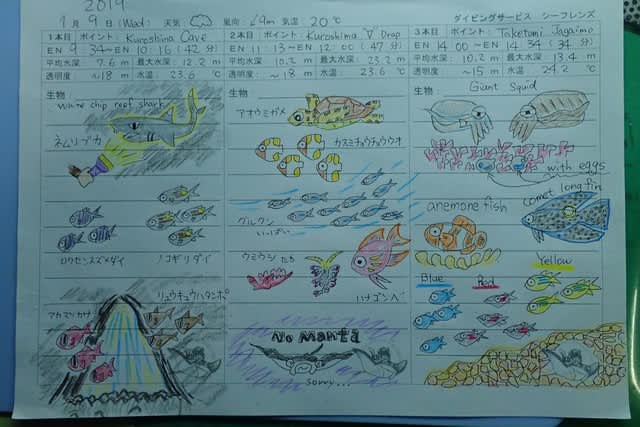 2019
1月 9日 (Wed) 天気: 風向: ↙9m 気温: 20℃
ダイビングサービス シーフレンズ
1本目 ポイント: Kuroshima Cave
EN 9:34~EN 10:16 (42分)
平均水深: 7.6 m 最大水深: 12.2 m
透明度: ~18 m 水温: 23.6 ℃
生物:
white chip reef shark
ネムリブカ
ロクセンスズメダイ
ノコギリダイ
リュウキュウハタンポ
アカマツカサ
2本目 ポイント: Kuroshima "V" Drop
EN 11:13~EN 12:00 (47分)
平均水深: 10.2 m 最大水深: 23.2 m
透明度: ~18 m 水温: 23.6 ℃
生物:
アオウミガメ
カスミチョウチョウウオ
グルクン
いっぱい
ウミウシたち
ハナゴンベ
No manta
sorry...
3本目 ポイント: Taketomi Jagaimo
EN 14:00~EN 14:34 (34分)
平均水深: 10.2 m 最大水深: 13.4 m
透明度: ~15 m 水温: 24.2 ℃
生物:
Giant Squid
with eggs
anemone fish
comet long fin
Yellow
Blue Red